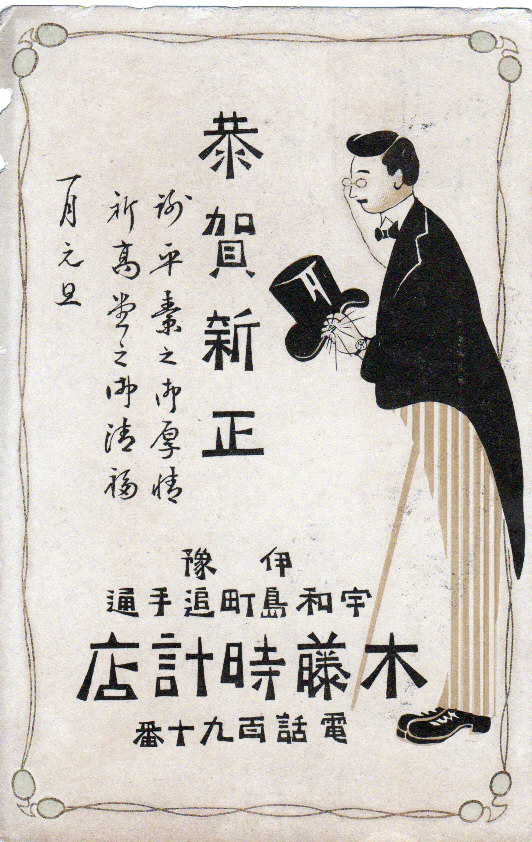 恭賀新正
謝平素之御厚情
祈高堂之御清福
一月元旦
伊豫
宇和島町追手通
木藤時計店
電話百九十番